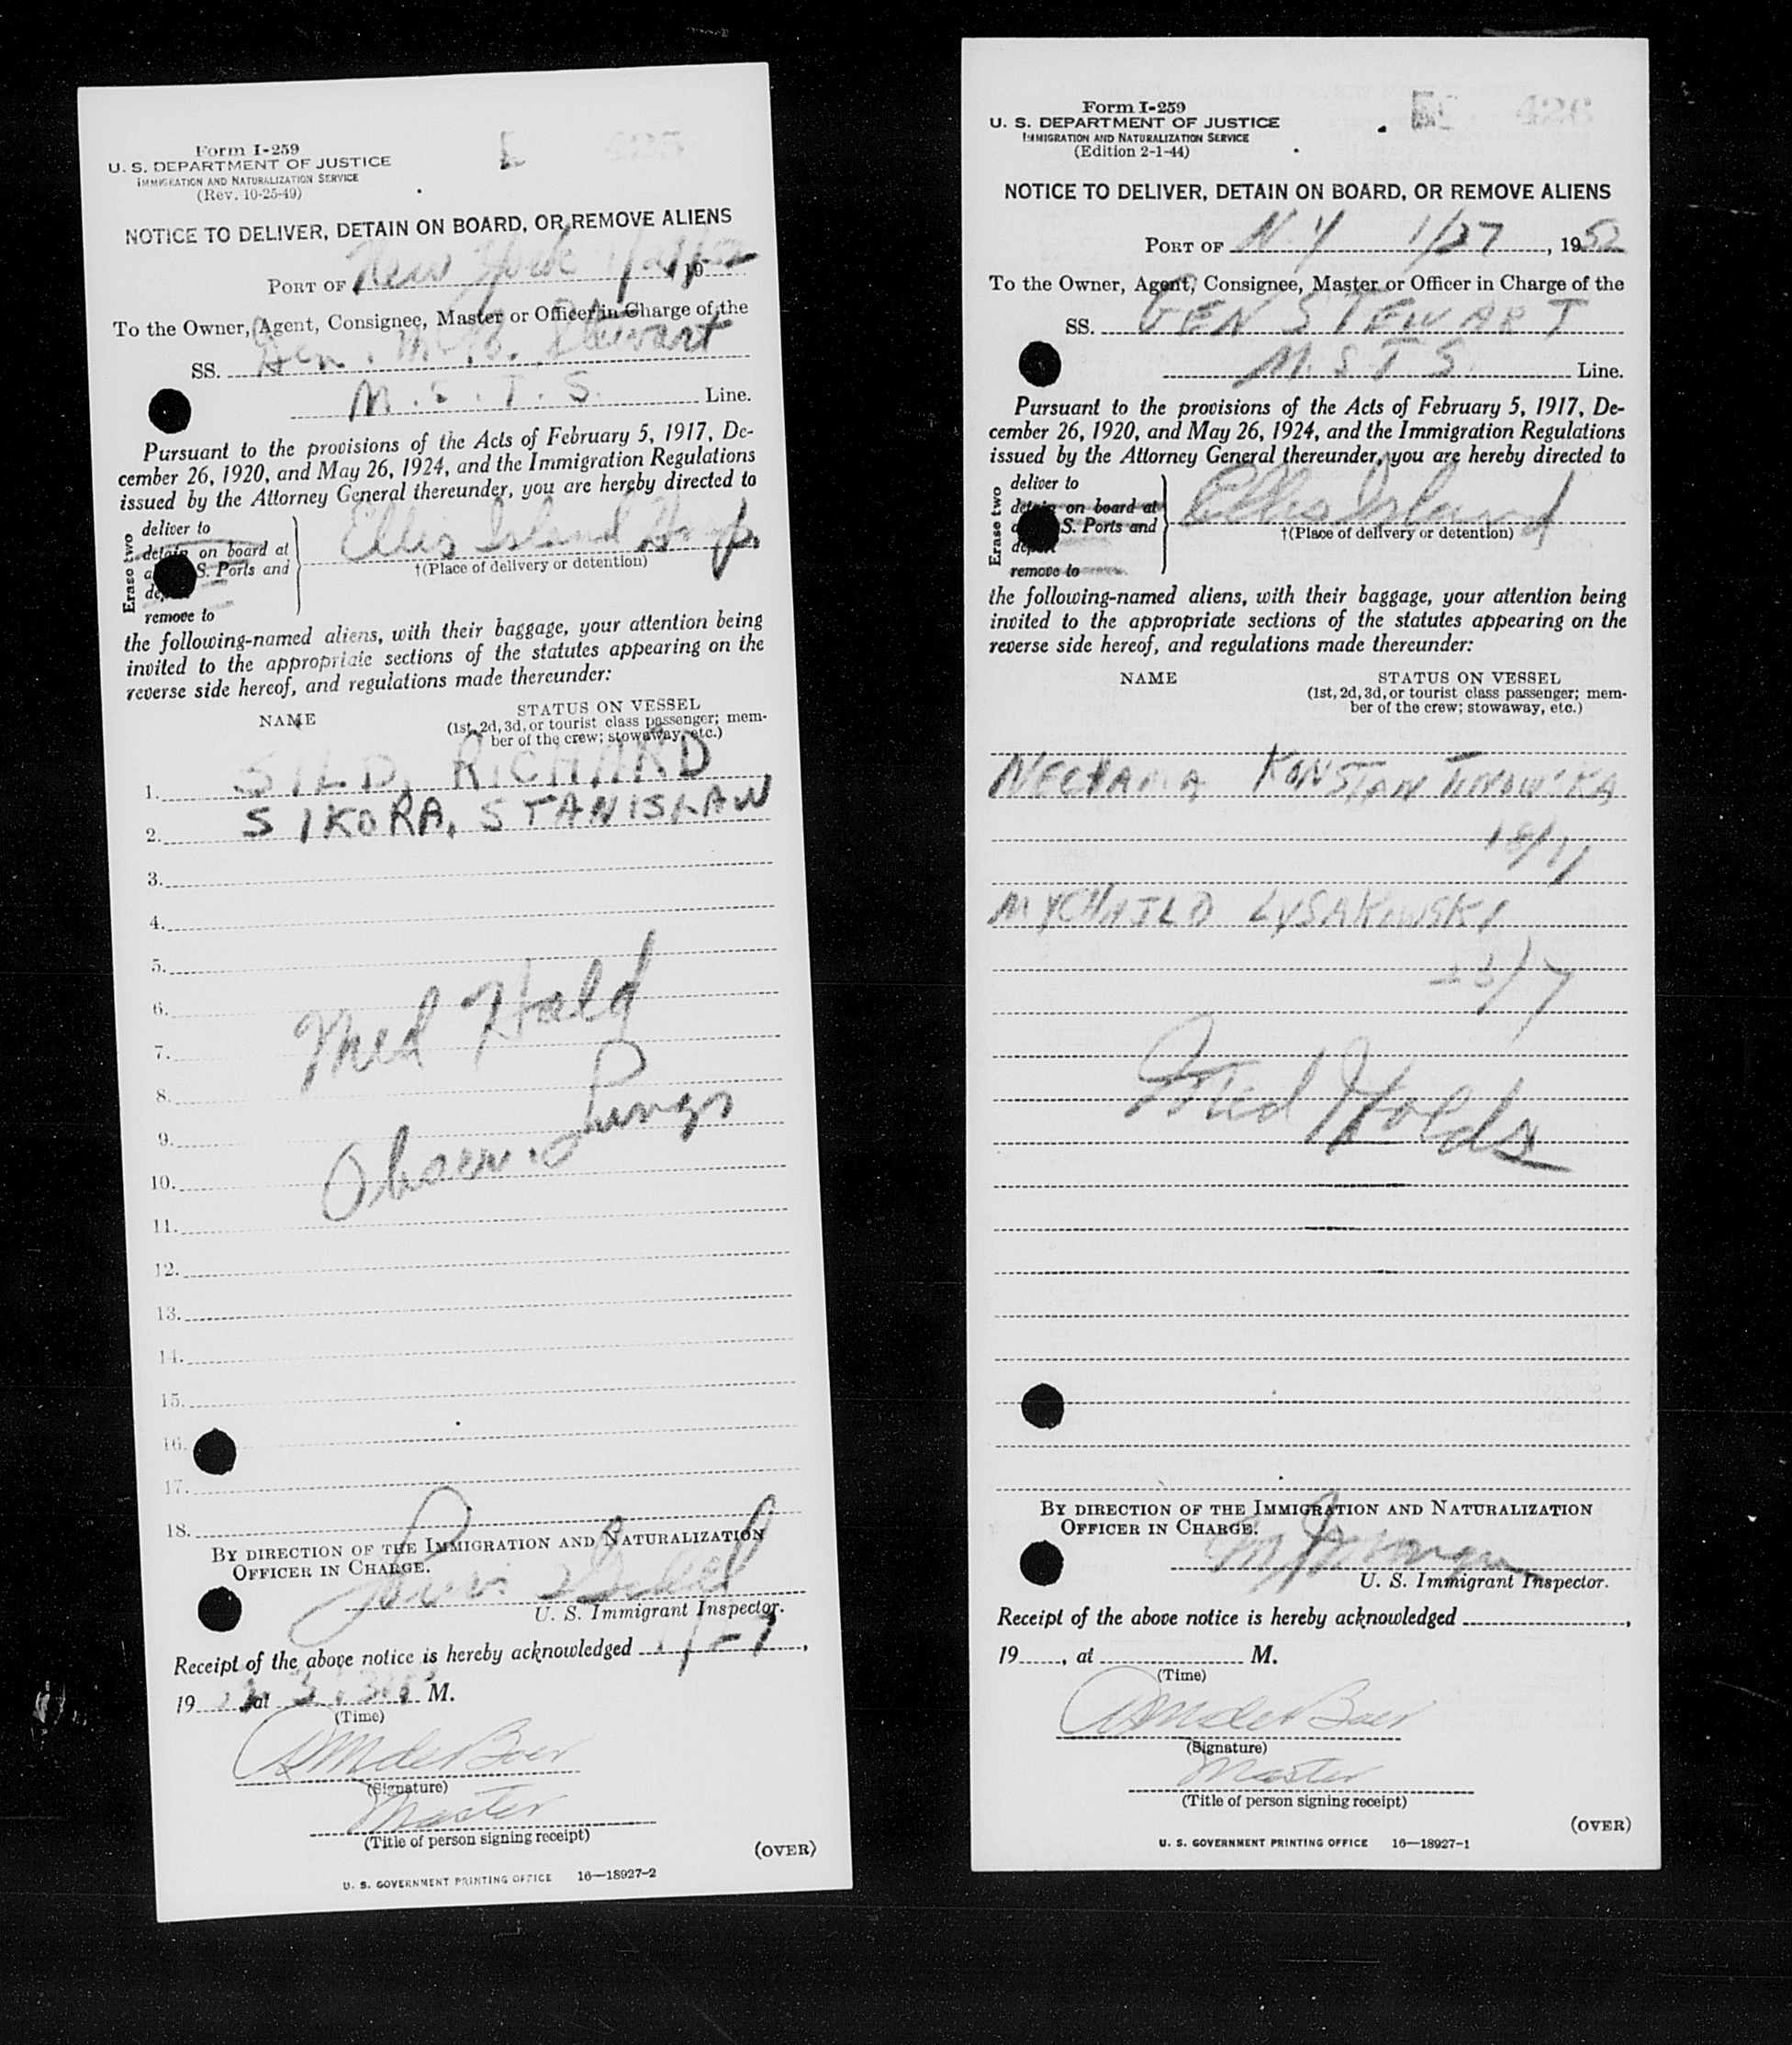 Form I-259
U. S. DEPARTMENT OF JUSTICE
IMMIGRATION AND NATURALIZATION SERVICE
(Rev. 10-25-49)
NOTICE TO DELIVER, DETAIN ON BOARD, OR REMOVE ALIENS
PORT OF New York 19
To the Owner, Agent, Consignee, Master or Officer in Charge of the
SS. Gen. M. B. Stewart
M. S. T. S. Line.
Pursuant to the provisions of the Acts of February 5, 1917, De-
cember 26, 1920, and May 26, 1924, and the Immigration Regulations
issued by the Attorney General thereunder, you are hereby directed to
Erase two
deliver to
detain on board at
S. Ports and
remove to
Ellis Island Hosp.
†(Place of delivery or detention)
the following-named aliens, with their baggage, your attention being
invited to the appropriate sections of the statutes appearing on the
reverse side hereof, and regulations made thereunder:
NAME STATUS ON VESSEL
(1st, 2d, 3d, or tourist class passenger; mem-
ber of the crew; stowaway, etc.)
1. SILD, RICHARD
2. SIKORA, STANISLAW
3.
4.
5.
6.
7.
8.
9.
10.
11.
12.
13.
14.
15.
16.
17.
18.
Med Hold
Observ. Lungs
BY DIRECTION OF THE IMMIGRATION AND NATURALIZATION
OFFICER IN CHARGE.
U. S. Immigrant Inspector.
Receipt of the above notice is hereby acknowledged
19 at M.
(Time)
deBoer
(Signature)
Master
(Title of person signing receipt)
(OVER)
U. S. GOVERNMENT PRINTING OFFICE 16—18927-2
Form I-259
U. S. DEPARTMENT OF JUSTICE
IMMIGRATION AND NATURALIZATION SERVICE
(Edition 2-1-44)
NOTICE TO DELIVER, DETAIN ON BOARD, OR REMOVE ALIENS
PORT OF N.Y 1/27, 1952
To the Owner, Agent, Consignee, Master or Officer in Charge of the
SS. GEN STEWART
M. S T S. Line.
Pursuant to the provisions of the Acts of February 5, 1917, De-
cember 26, 1920, and May 26, 1924, and the Immigration Regulations
issued by the Attorney General thereunder, you are hereby directed to
Erase two
deliver to
detain on board at
S. Ports and
remove to
Ellis Island
†(Place of delivery or detention)
the following-named aliens, with their baggage, your attention being
invited to the appropriate sections of the statutes appearing on the
reverse side hereof, and regulations made thereunder:
NAME STATUS ON VESSEL
(1st, 2d, 3d, or tourist class passenger; mem-
ber of the crew; stowaway, etc.)
MYCHAJLO LYSAKOWSKI
Med Holds
BY DIRECTION OF THE IMMIGRATION AND NATURALIZATION
OFFICER IN CHARGE.
U. S. Immigrant Inspector.
Receipt of the above notice is hereby acknowledged ,
19 , at M.
(Time)
deBoer
(Signature)
Master
(Title of person signing receipt)
(OVER)
U. S. GOVERNMENT PRINTING OFFICE 16—18927-1